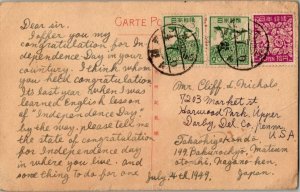 CARTE POST
Dear sir.
I offer you my
congratulation for In
dependence Day in your
country. I think whom
you held congratulation
Its last year. When I was
learned English lesson
of "Independence Day"
by the way, please tell me
the state of congratulation
for Independence Day
in where you live and
one thing to do for one
日本郵便
日本郵便
Mr. Cliff d. Nichols,
7203 Market st
Harwood Park. Upper
Darby, Del Co, Penna
U.S.A
Takashige Kondo
199, Matsumoto
otoshi, Nagano-ken,
July 24th 1949, Japan.